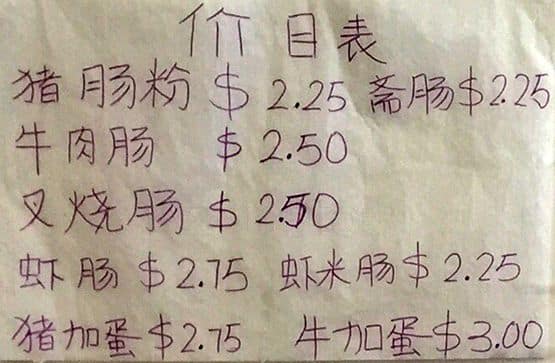 价目表
猪肠粉 $2.25 斋肠$2.25
牛肉肠 $2.50
叉烧肠 $2.50
虾肠 $2.75 虾米肠 $2.25
猪加蛋 $2.75 牛加蛋 $3.00